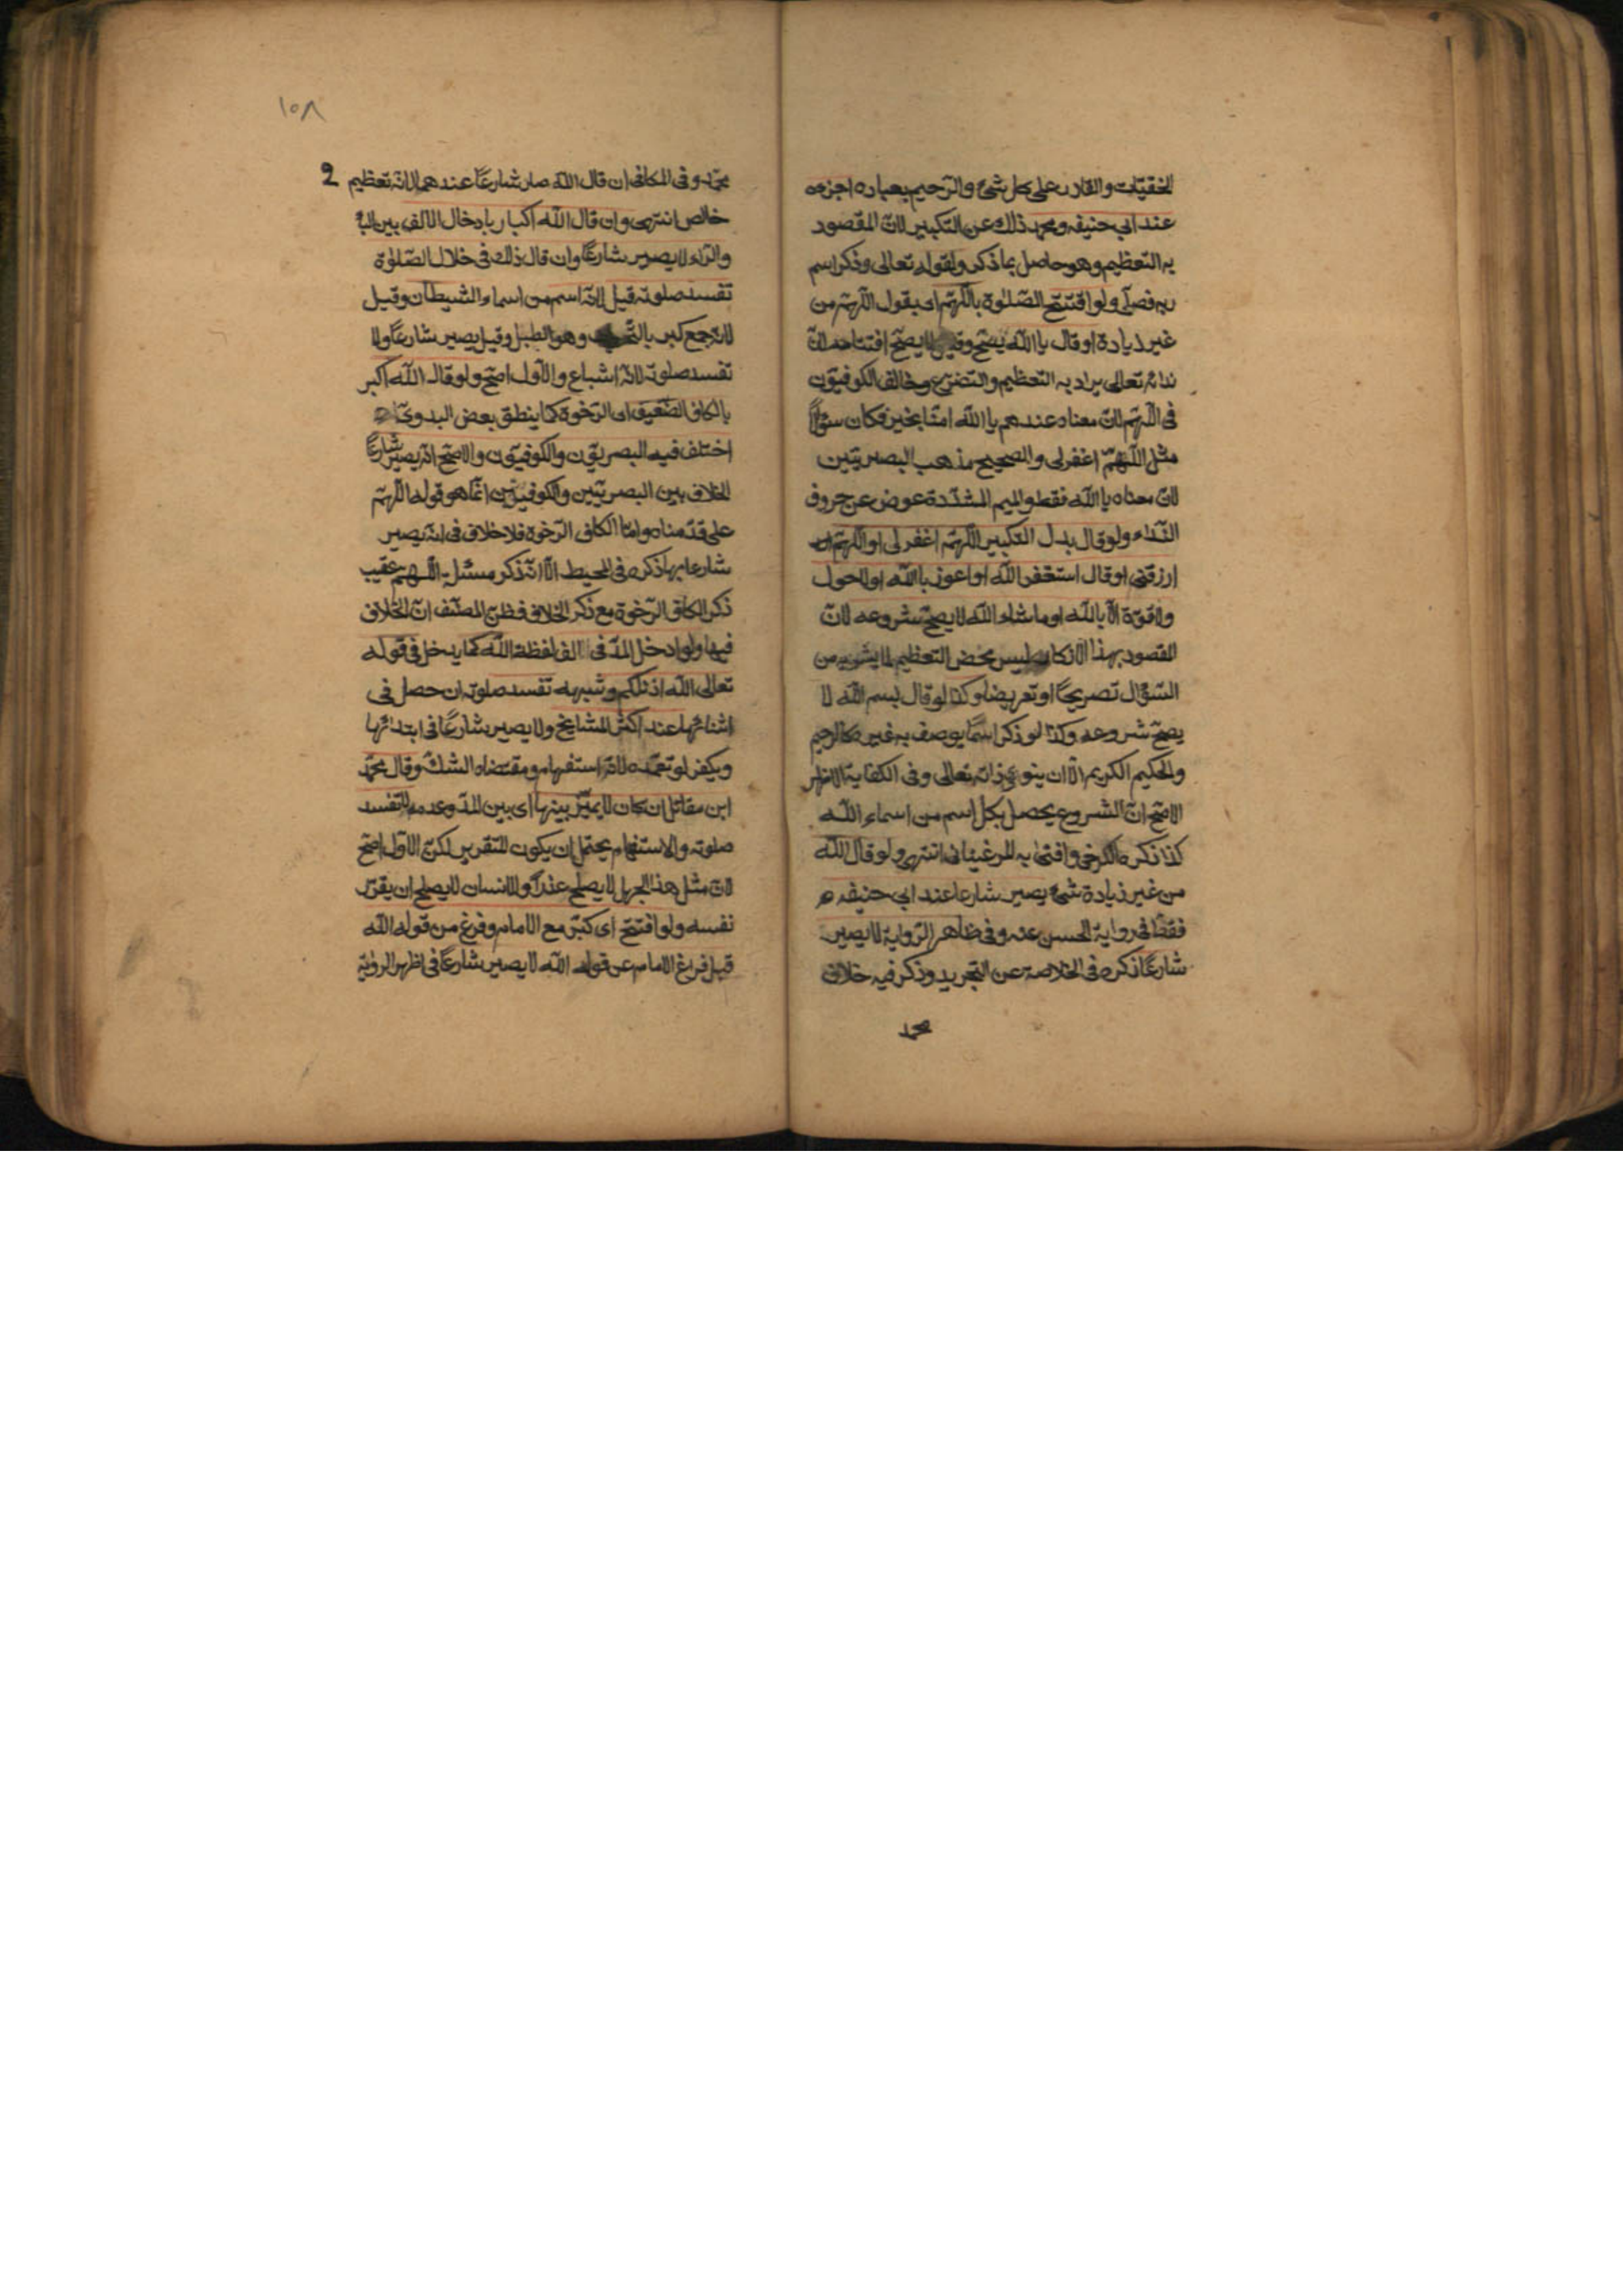 الخفيّات والقادر على كل شئ والرّحيم بعباده اجزءه
عند ابي حنيفه ومحمد ذلك عن التكبير لانّ المقصود
به التعظيم وهو حاصل بما ذكر ولقوله تعالى وذكر اسم
ربه فصلّى ولو افتتح الصّلوة باللّهمّ اى يقول اللّهمّ من
غير زيادة او قال يا اللّه يصحّ وقيل لا يصحّ افتتاحه لانّ
ندائه تعالى يراد به التعظيم والتضرّع وخالف الكوفيّون
فى اللّهمّ لانّ معناه عندهم يا اللّه امنّا بخير فكان سؤالاً
مثل اللّهمّ اغفر لى والصحيح مذهب البصريّين
لانّ معناه يا اللّه فقط والميم المشدّدة عوض عن حروف
النّداء ولو قال بدل التكبير اللّهمّ اغفر لى او اللّهمّ
ارزقنى او قال استغفر اللّه او اعوذ باللّه او لا حول
ولا قوّة الّا باللّه او ما شاء اللّه لا يصحّ شروعه لانّ
المقصود بهذا الاذكار ليس محض التعظيم لما يشوبه من
السّؤال تصريحًا او تعريضا وكذا لو قال بسم اللّه لا
يصحّ شروعه وكذا لو ذكر اسمًا يوصف به غيره كالرحيم
والحكيم الكريم الّا ان ينوى ذاته تعالى وفى الكفاية الاظهر
الاصحّ انّ الشروع يحصل بكل اسم من اسماء اللّه
كذا ذكره الكرخى وافتى به المرغينانى انتهى ولو قال اللّه
من غير زيادة شئ يصير شارعا عند ابى حنيفه
فقط فى رواية الحسن عنه وفى ظاهر الرّواية لا يصير
شارعًا ذكره فى الخلاصة عن التجريد وذكر فيه خلاف
محمد
١٥٨
محمّد وفى الكافى ان قال اللّه صار شارعًا عندهما لانّه تعظيم
خالص انتهى وان قال اللّه اكبار بادخال الالف بين البا
والرّاء لا يصير شارعًا وان قال ذلك فى خلال الصّلوة
تفسد صلوته قيل لانّه اسم من اسماء الشيطان وقيل
لانّه جمع كبر وهو الطبل وقيل يصير شارعًا ولا
تفسد صلوته لانّه اشباع والاوّل اصحّ ولو قال اللّه اكبر
بالكاف الضّعيف اى الرّخوة كما ينطق بعض البدوىّ
اختلف فيه البصريّون والكوفيّون والاصحّ انّه يصير شارعًا
الخلاف بين البصريّين والكوفيّين انّما هو قوله اللّهمّ
على قدّمناه وامّا الكاف الرّخوة فلا خلاف فى انّه يصير
شارعا بها ذكره فى المحيط الّا انّه ذكر مسئلة اللّهم عقيب
ذكر الكاف الرّخوة مع ذكر الخلاف فظنّ المصنّف انّ الخلاف
فيها ولو ادخل المدّ فى الف لفظة اللّه كما يدخل فى قوله
تعالى اللّه اذن لكم وشبهه تفسد صلوته ان حصل فى
اثنائها عند اكثر المشايخ ولا يصير شارعًا فى ابتدائها
ويكفر لو تعمّده لانّه استفهام ومقتضاه الشك وقال محمّد
ابن مقاتل ان كان لا يميّز بينها اى بين المدّ وعدمه لا تفسد
صلوته والاستفهام يحتمل ان يكون للتقرير لكنّ الاوّل اصحّ
لانّ مثل هذا الجهل لا يصلح عذرًا والانسان لا يصلح ان يقرّر
نفسه ولو افتتح اى كبّر مع الامام وفرغ من قوله اللّه
قبل فراغ الامام عن قوله اللّه لا يصير شارعًا فى اظهر الرواية